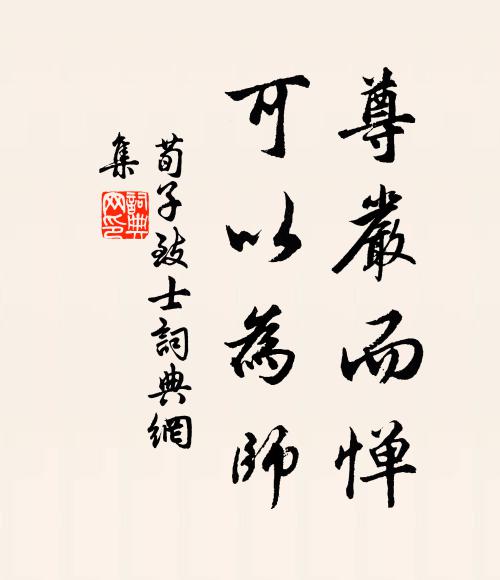 尊嚴而惮
可以為師
荀子致士詞典網
集
詞典網印